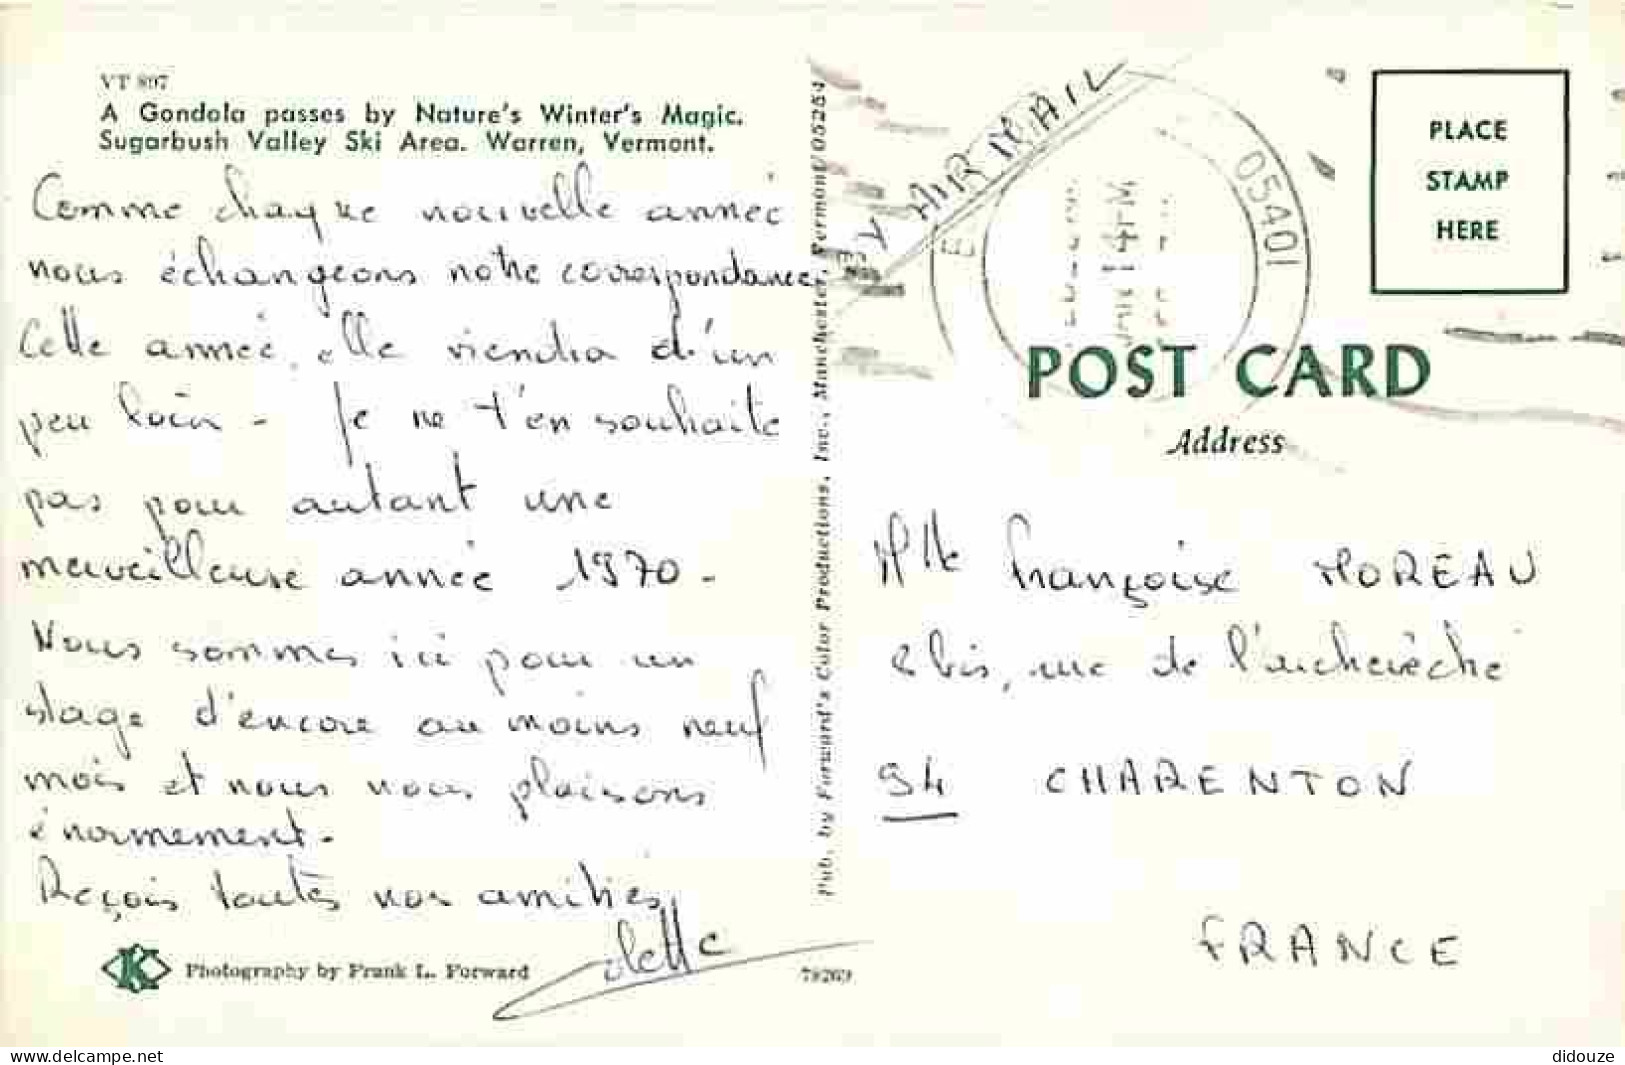 VT 897
A Gondola passes by Nature's Winter's Magic.
Sugarbush Valley Ski Area. Warren, Vermont.
Comme chaque nouvelle année
nous échangeons notre correspondance
Cette année, elle viendra d'un
peu loin - Je ne t'en souhaite
pas pour autant une
merveilleuse année 1970 -
Nous sommes ici pour un
stage d'encore au moins neuf
mois et nous nous plaisons
énormement -
Reçois toutes nos amitiés
Photography by Frank L. Forward
78269
Pub. by Forward's Color Productions, Inc., Manchester, Vermont 05254
BY AIR MAIL
05401
PLACE
STAMP
HERE
POST CARD
Address
Mlle Françoise MOREAU
2 bis, rue de l'archevêché
94 CHARENTON
FRANCE
www.delcampe.net
didouze